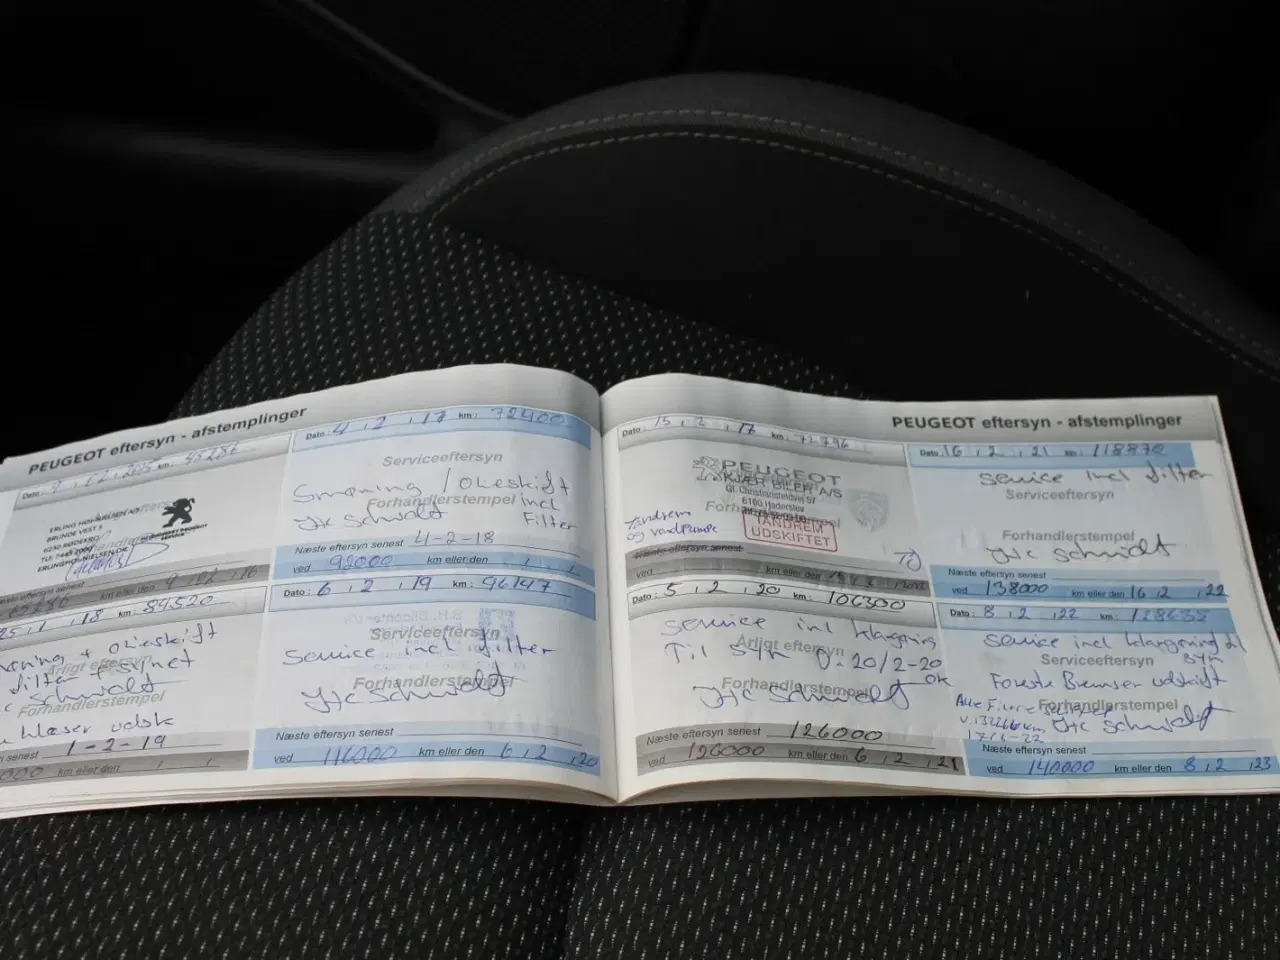 PEUGEOT eftersyn - afstemplinger
Dato: 9 , 02 , 2015 km: 45286
ERLING HOFNIELSEN A/S
BRUNDE VEST 5
6230 RØDEKRO
senest 9 , 02 , 16
Dato: 4 , 2 , 17 km: 72400
Serviceeftersyn
Smøring / Olieskift
Forhandlerstempel incl
JHC Schmidt Filter
Næste eftersyn senest 4-2-18
ved 92000 km eller den
25 , 1 , 18 km: 89520
Smøring + olieskift
Årligt eftersyn
filter + synet
Schmidt
Forhandlerstempel
blæser udsk
senest 1-2-19
km eller den
Dato: 6 , 2 , 19 km: 96147
Serviceeftersyn
Service incl filter
Forhandlerstempel
JHC Schmidt
Næste eftersyn senest
ved 116000 km eller den 6 , 2 , 20
PEUGEOT eftersyn - afstemplinger
Dato: 15 , 2 , 17 km: 72796
PEUGEOT
KJÆR BILER A/S
Gl. Christiansfeldvej 57
6100 Haderslev
Tandrem
og vandpumpe
TANDREM
UDSKIFTET
Næste eftersyn senest
ved km eller den
Dato: 16 , 2 , 21 km: 118870
Service incl filter
Serviceeftersyn
Forhandlerstempel
JHC Schmidt
Næste eftersyn senest
ved 138000 km eller den 16 , 2 , 22
Dato: 5 , 2 , 20 km: 106300
Service incl klargøring
Årligt eftersyn
Til Syn D. 20/2-20
OK
Forhandlerstempel
JHC Schmidt
Næste eftersyn senest 126000
ved 126000 km eller den 6 , 2 , 21
Dato: 8 , 2 , 22 km: 128635
Service incl klargøring til
syn
Serviceeftersyn
Forreste Bremser udskift
Forhandlerstempel
Alle Fire
JHC Schmidt
Næste eftersyn senest
ved 140000 km eller den 8 , 2 , 23